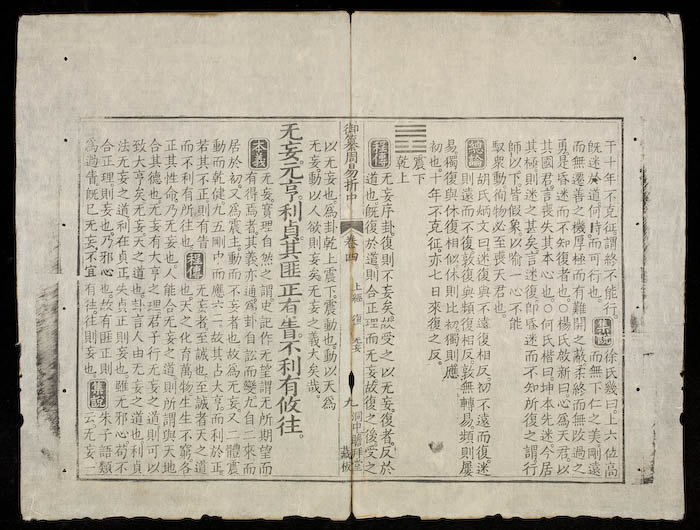 于十年不克征。謂終不能行。
旣迷於道。何時而可行也。
集說
徐氏幾曰。上六位高
而无下仁之美。剛遠
而无遷善之機。厚極而有難開之蔽。柔終而无改過之
勇。是昏迷而不知復者也。○楊氏啟新曰。心為天君。以
其國君言。喪失其本心也。○何氏楷曰。坤本先迷。今居
其極。則迷之甚矣。言迷復。卽昏迷而不知所復之謂。行
師以下。皆假象以喻一心不能
馭衆動徇物。必至喪天君也。
總論
胡氏炳文曰。迷復與不遠復相反。初不遠而復。迷
則遠而不復。敦復與頻復相反。敦无轉易。頻則屢
易。獨復與休復相似。休則比初。獨則應
初也。十年不克征。亦七日來復之反。
震下
乾上
程傳
无妄。序卦。復則不妄矣。故受之以无妄。復者。反於
道也。旣復於道。則合正理而无妄。故復之後。受之
御纂周易折中
卷四
上經 復 无妄
九
藏板
以无妄也。為卦乾上震下。震動也。動以天為
无妄。動以人欲則妄矣。无妄之義大矣哉。
无妄。元亨。利貞。其匪正有眚。不利有攸往。
本義
无妄。實理自然之謂。史記作无望。謂无所期望而
有得焉者。其義亦通。為卦自訟而變。九自二來而
居於初。又為震主。動而不妄者也。故為无妄。又二體震
動而乾健。九五剛中而應六二。故其占大亨而利於正。
若其不正則有眚。
而不利有所往也。
程傳
无妄者。至誠也。至誠者。天之道
也。天之化育萬物。生生不窮。各
正其性命。乃无妄也。人能合无妄之道。則所謂與天地
合其德也。无妄有大亨之理。君子行无妄之道。則可以
致大亨矣。无妄。天之道也。卦言人由无妄之道也。利貞。
法无妄之道。利在貞正。失貞正則妄也。雖无邪心。苟不
合正理則妄也。乃邪心也。故有匪正則
為過眚。旣已无妄。不宜有往。往則妄也。
集說
朱子語類
云。无妄一